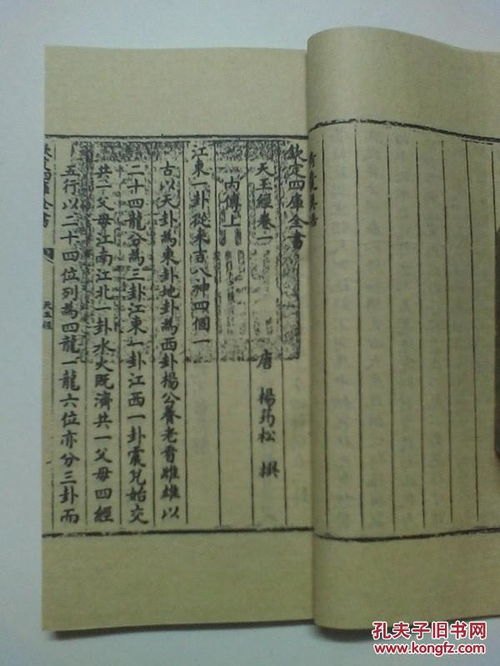 欽定四庫全書
天玉經卷一
唐 楊筠松 撰
內傳上
江東一卦從來吉八神四個一
古以天卦為東卦地卦為西卦楊公養老書雌雄以
二十四龍分為三卦江東一卦江西一卦震兌始交
共一父母江南江北一卦水火既濟共一父母四經
五行以二十四位列為四龍一龍六位亦分三卦而
欽定四庫全書
天玉經
孔夫子旧书网
www.kongfz.com